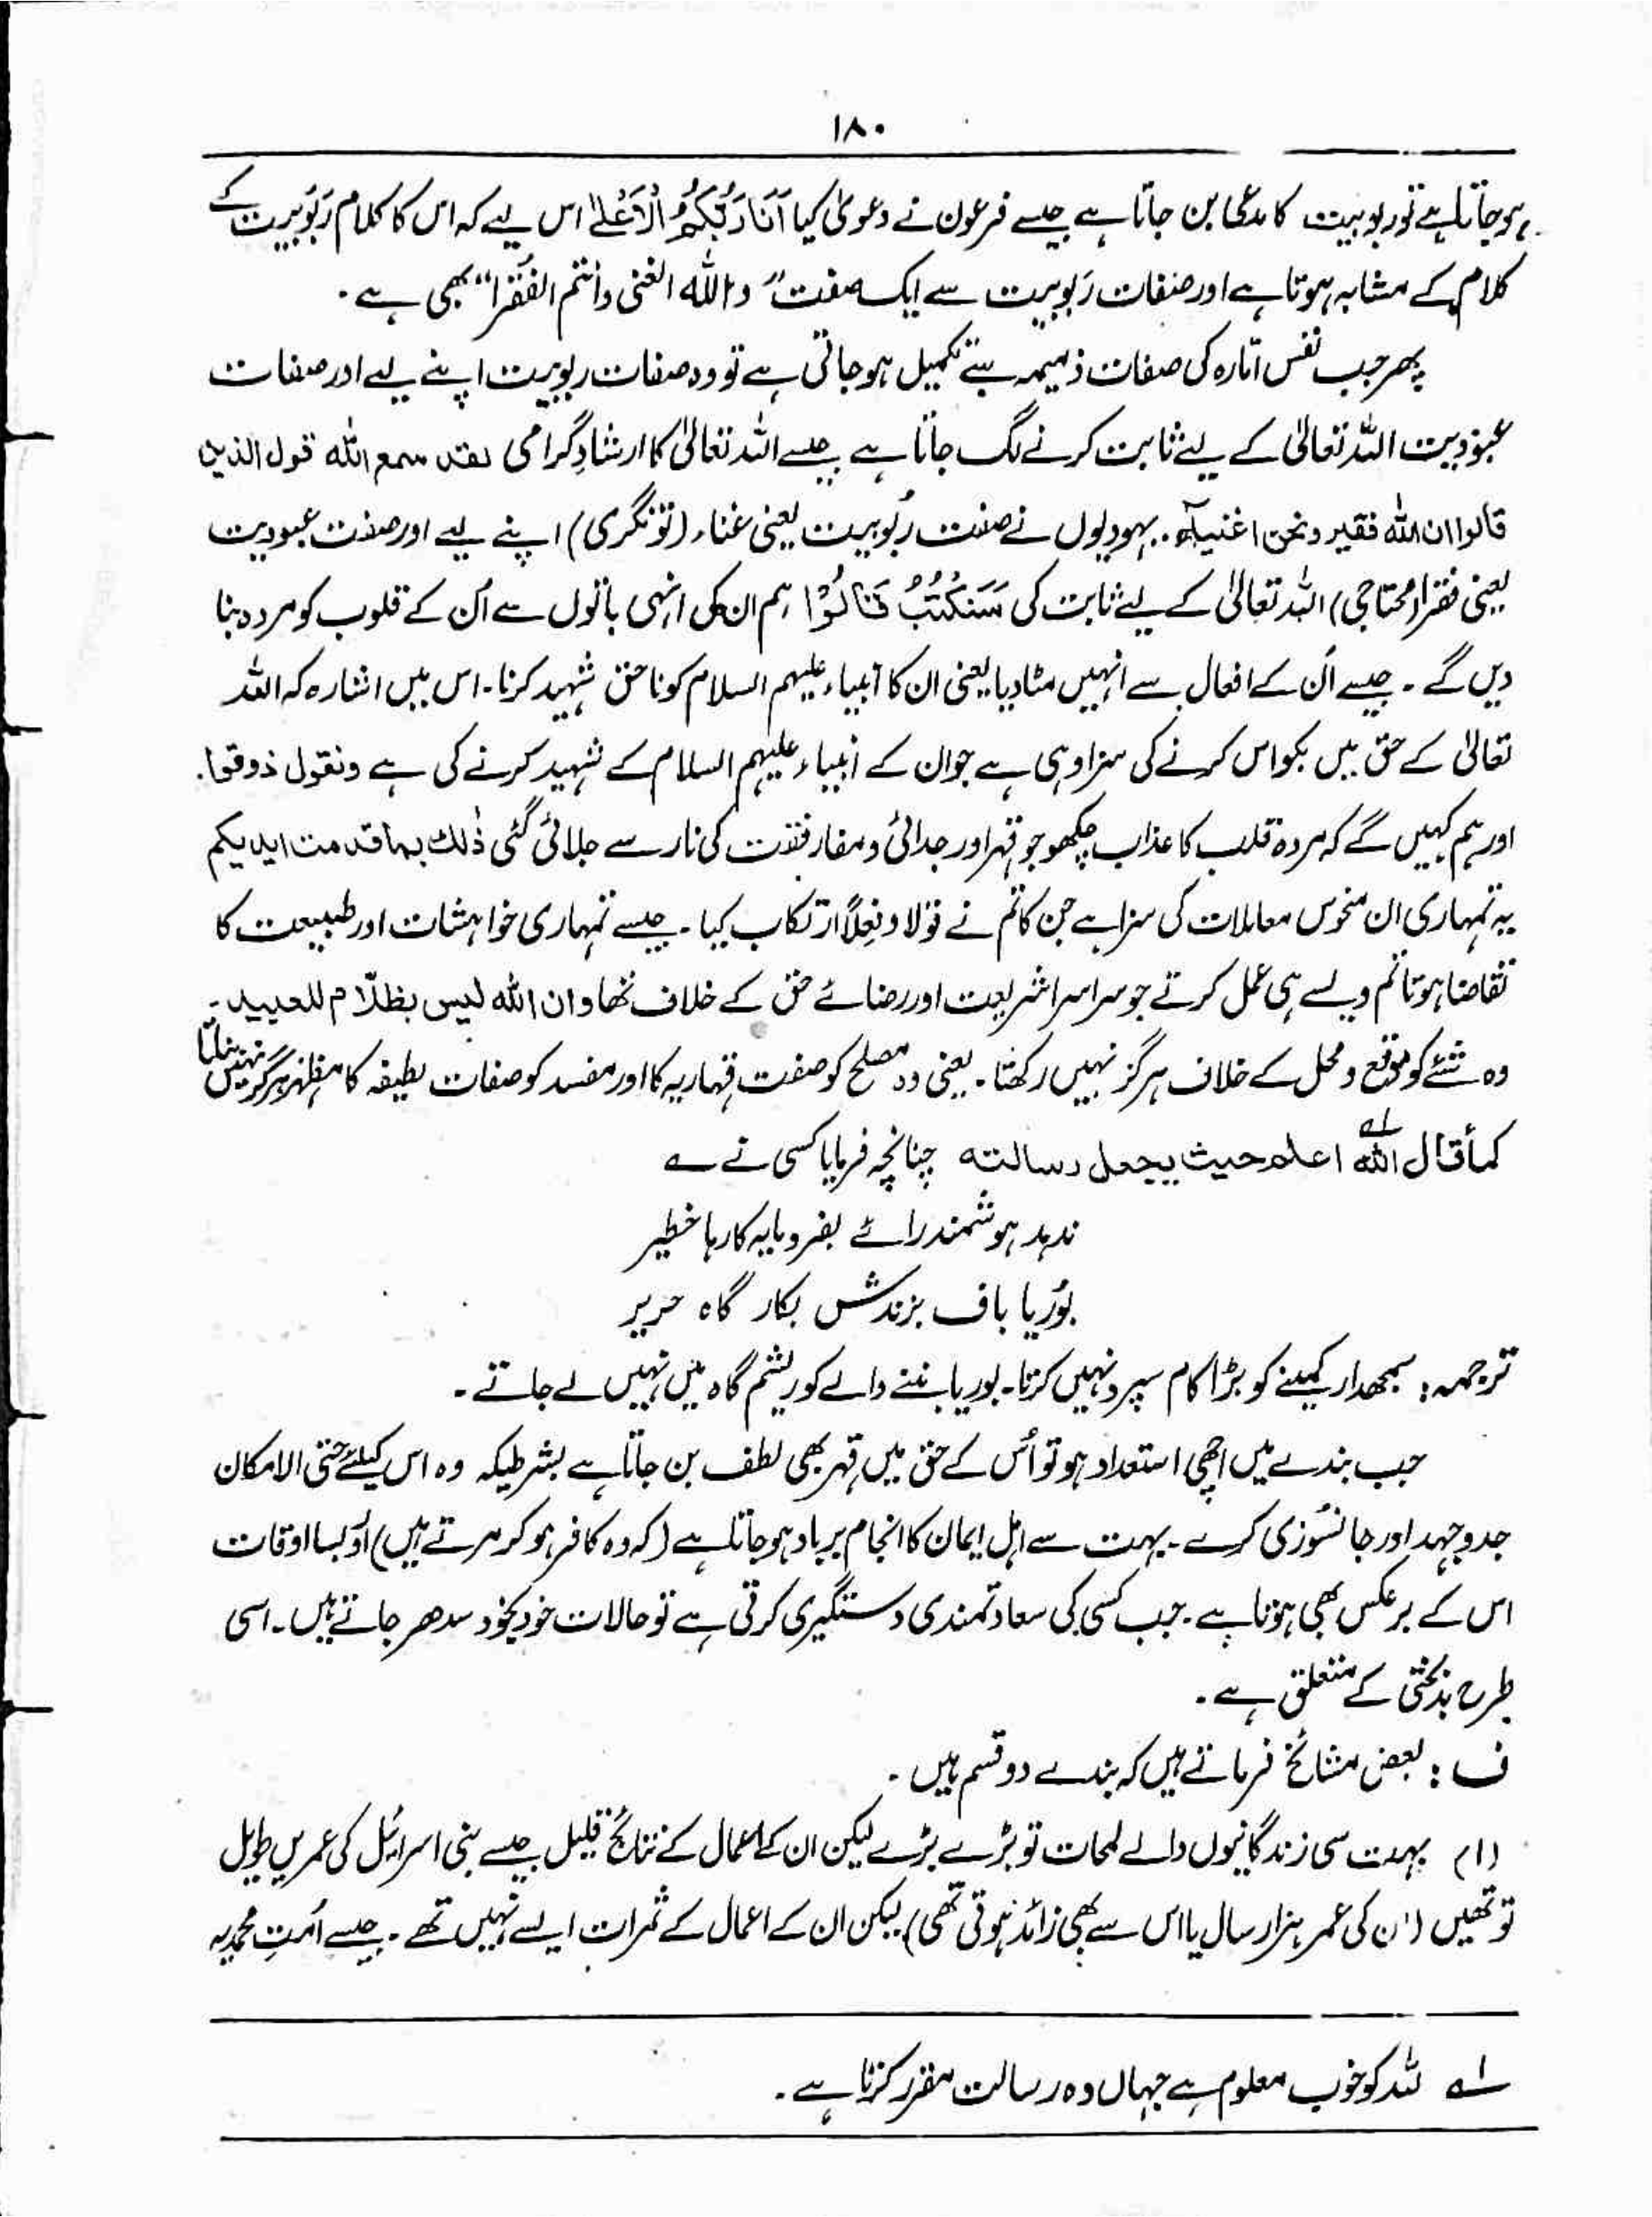 ۱۸۰
ہوجاتا ہے تو ربوبیت کا مدعی بن جاتا ہے جیسے فرعون نے دعویٰ کیا اَنَا رَبُّکُمُ الْاَعْلٰے اس لیے کہ اس کا کلام رَبُوبیت کے
کلام کے مشابہ ہوتا ہے اور صفات رَبوبیت سے ایک صفت ”واللہ الغنی وانتم الفُقَرا“ بھی ہے ۔
پھر جب نفس امّارہ کی صفات ذمیمہ سے تکمیل ہوجاتی ہے تو وہ صفات ربوبیت اپنے لیے اور صفات
عبُودیت اللہ تعالیٰ کے لیے ثابت کرنے لگ جاتا ہے جیسے اللہ تعالیٰ کا ارشادِ گرامی لقد سمع اللہ قول الذین
قالوا ان اللہ فقیر ونحن اغنیآء ۔ یہودیوں نے صفت ربُوبیت یعنی غناء (تونگری) اپنے لیے اور صفت عبودیت
یعنی فقر (محتاجی) اللہ تعالیٰ کے لیے ثابت کی سَنَکْتُبُ مَا قَالُوْا ہم ان کی انہی باتوں سے اُن کے قلوب کو مردہ بنا
دیں گے ۔ جیسے اُن کے افعال سے انہیں مٹا دیا یعنی ان کا انبیاء علیہم السلام کو ناحق شہید کرنا ۔ اس میں اشارہ کہ اللہ
تعالیٰ کے حق میں بکواس کرنے کی سزا وہی ہے جو ان کے انبیاء علیہم السلام کے شہید کرنے کی ہے ونقول ذوقوا ۔
اور ہم کہیں گے کہ مردہ قلب کا عذاب چکھو جو قہر اور جدائی و مفارقت کی نار سے جلائی گئی ذٰلک بما قدمت ایدیکم
یہ تمہاری ان منحوس معاملات کی سزا ہے جن کا تم نے قولا و فعلاً ارتکاب کیا ۔ جیسے تمہاری خواہشات اور طبیعت کا
تقاضا ہوتا تم ویسے ہی عمل کرتے جو سراسر شریعت اور رضائے حق کے خلاف تھا وان اللہ لیس بظلّام للعبید ۔
وہ شئے کو موقع و محل کے خلاف ہرگز نہیں رکھتا ۔ یعنی وہ مصلح کو صفت قہاریہ کا اور مفسد کو صفات لطیفہ کا مظہر ہرگز نہیں بناتا
کما قال اللہ لہ اعلم حیث یجعل رسالتہ چنانچہ فرمایا کسی نے ے
ندہد ہوشمند رائے بفرومایہ کارہا خطیر
بوُریا باف بزندش بکار گاہ حریر
ترجمہ : سمجھدار کمینے کو بڑا کام سپرد نہیں کرتا ۔ بوریا بننے والے کو ریشم گاہ میں نہیں لے جاتے ۔
جب بندے میں اچھی استعداد ہو تو اُس کے حق میں قہر بھی لطف بن جاتا ہے بشرطیکہ وہ اس کیلئے حتی الامکان
جدوجہد اور جانسُوزی کرے ۔ بہت سے اہل ایمان کا انجام برباد ہوجاتا ہے (کہ وہ کافر ہو کر مرتے ہیں) اور بسا اوقات
اس کے برعکس بھی ہوتا ہے ۔ جب کسی کی سعادتمندی دستگیری کرتی ہے تو حالات خود بخود سدھر جاتے ہیں ۔ اسی
طرح بدبختی کے متعلق ہے ۔
ف : بعض مشائخ فرماتے ہیں کہ بندے دو قسم ہیں ۔
(۱) بہت سی زندگانیوں والے لمحات تو بڑے بڑے لیکن ان کے اعمال کے نتائج قلیل جیسے بنی اسرائیل کی عمریں طویل
تو تھیں (ان کی عمر ہزار سال یا اس سے بھی زائد ہوتی تھی) لیکن ان کے اعمال کے ثمرات ایسے نہیں تھے ۔ جیسے اُمتِ محمدیہ
لہ للہ کو خوب معلوم ہے جہاں وہ رسالت مقرر کرتا ہے ۔